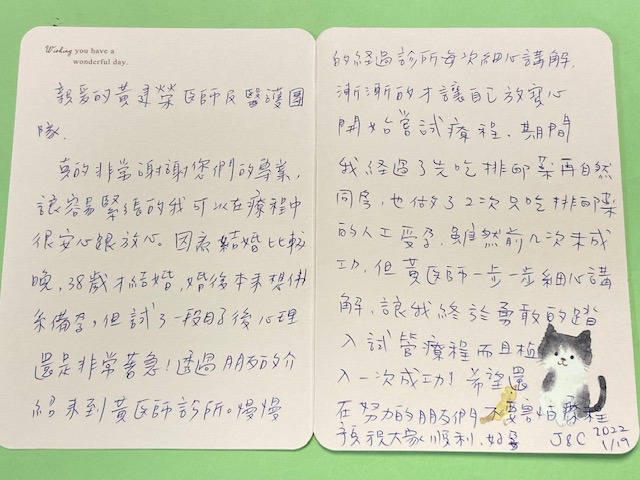 Wishing you have a
wonderful day.
親愛的黃建榮醫師及醫護團
隊.
真的非常謝謝您們的專業,
讓容易緊張的我可以在療程中
很安心跟放心。因為結婚比較
晚,38歲才結婚,婚後本來想佛
系備孕,但試了一段日子後心理
還是非常著急!透過朋友的介
紹來到黃醫師診所。慢慢
的經過診所每次細心講解.
漸漸的才讓自己放寬心
開始嘗試療程.期間
我經過了先吃排卵藥再自然
同房,也做了2次只吃排卵藥
的人工受孕.雖然前幾次未成
功.但黃醫師一步一步細心講
解.讓我終於勇敢的踏
入試管療程而且植
入一次成功!希望還
在努力的朋友們不要害怕療程
預祝大家順利.好孕 J&C 2022
1/19